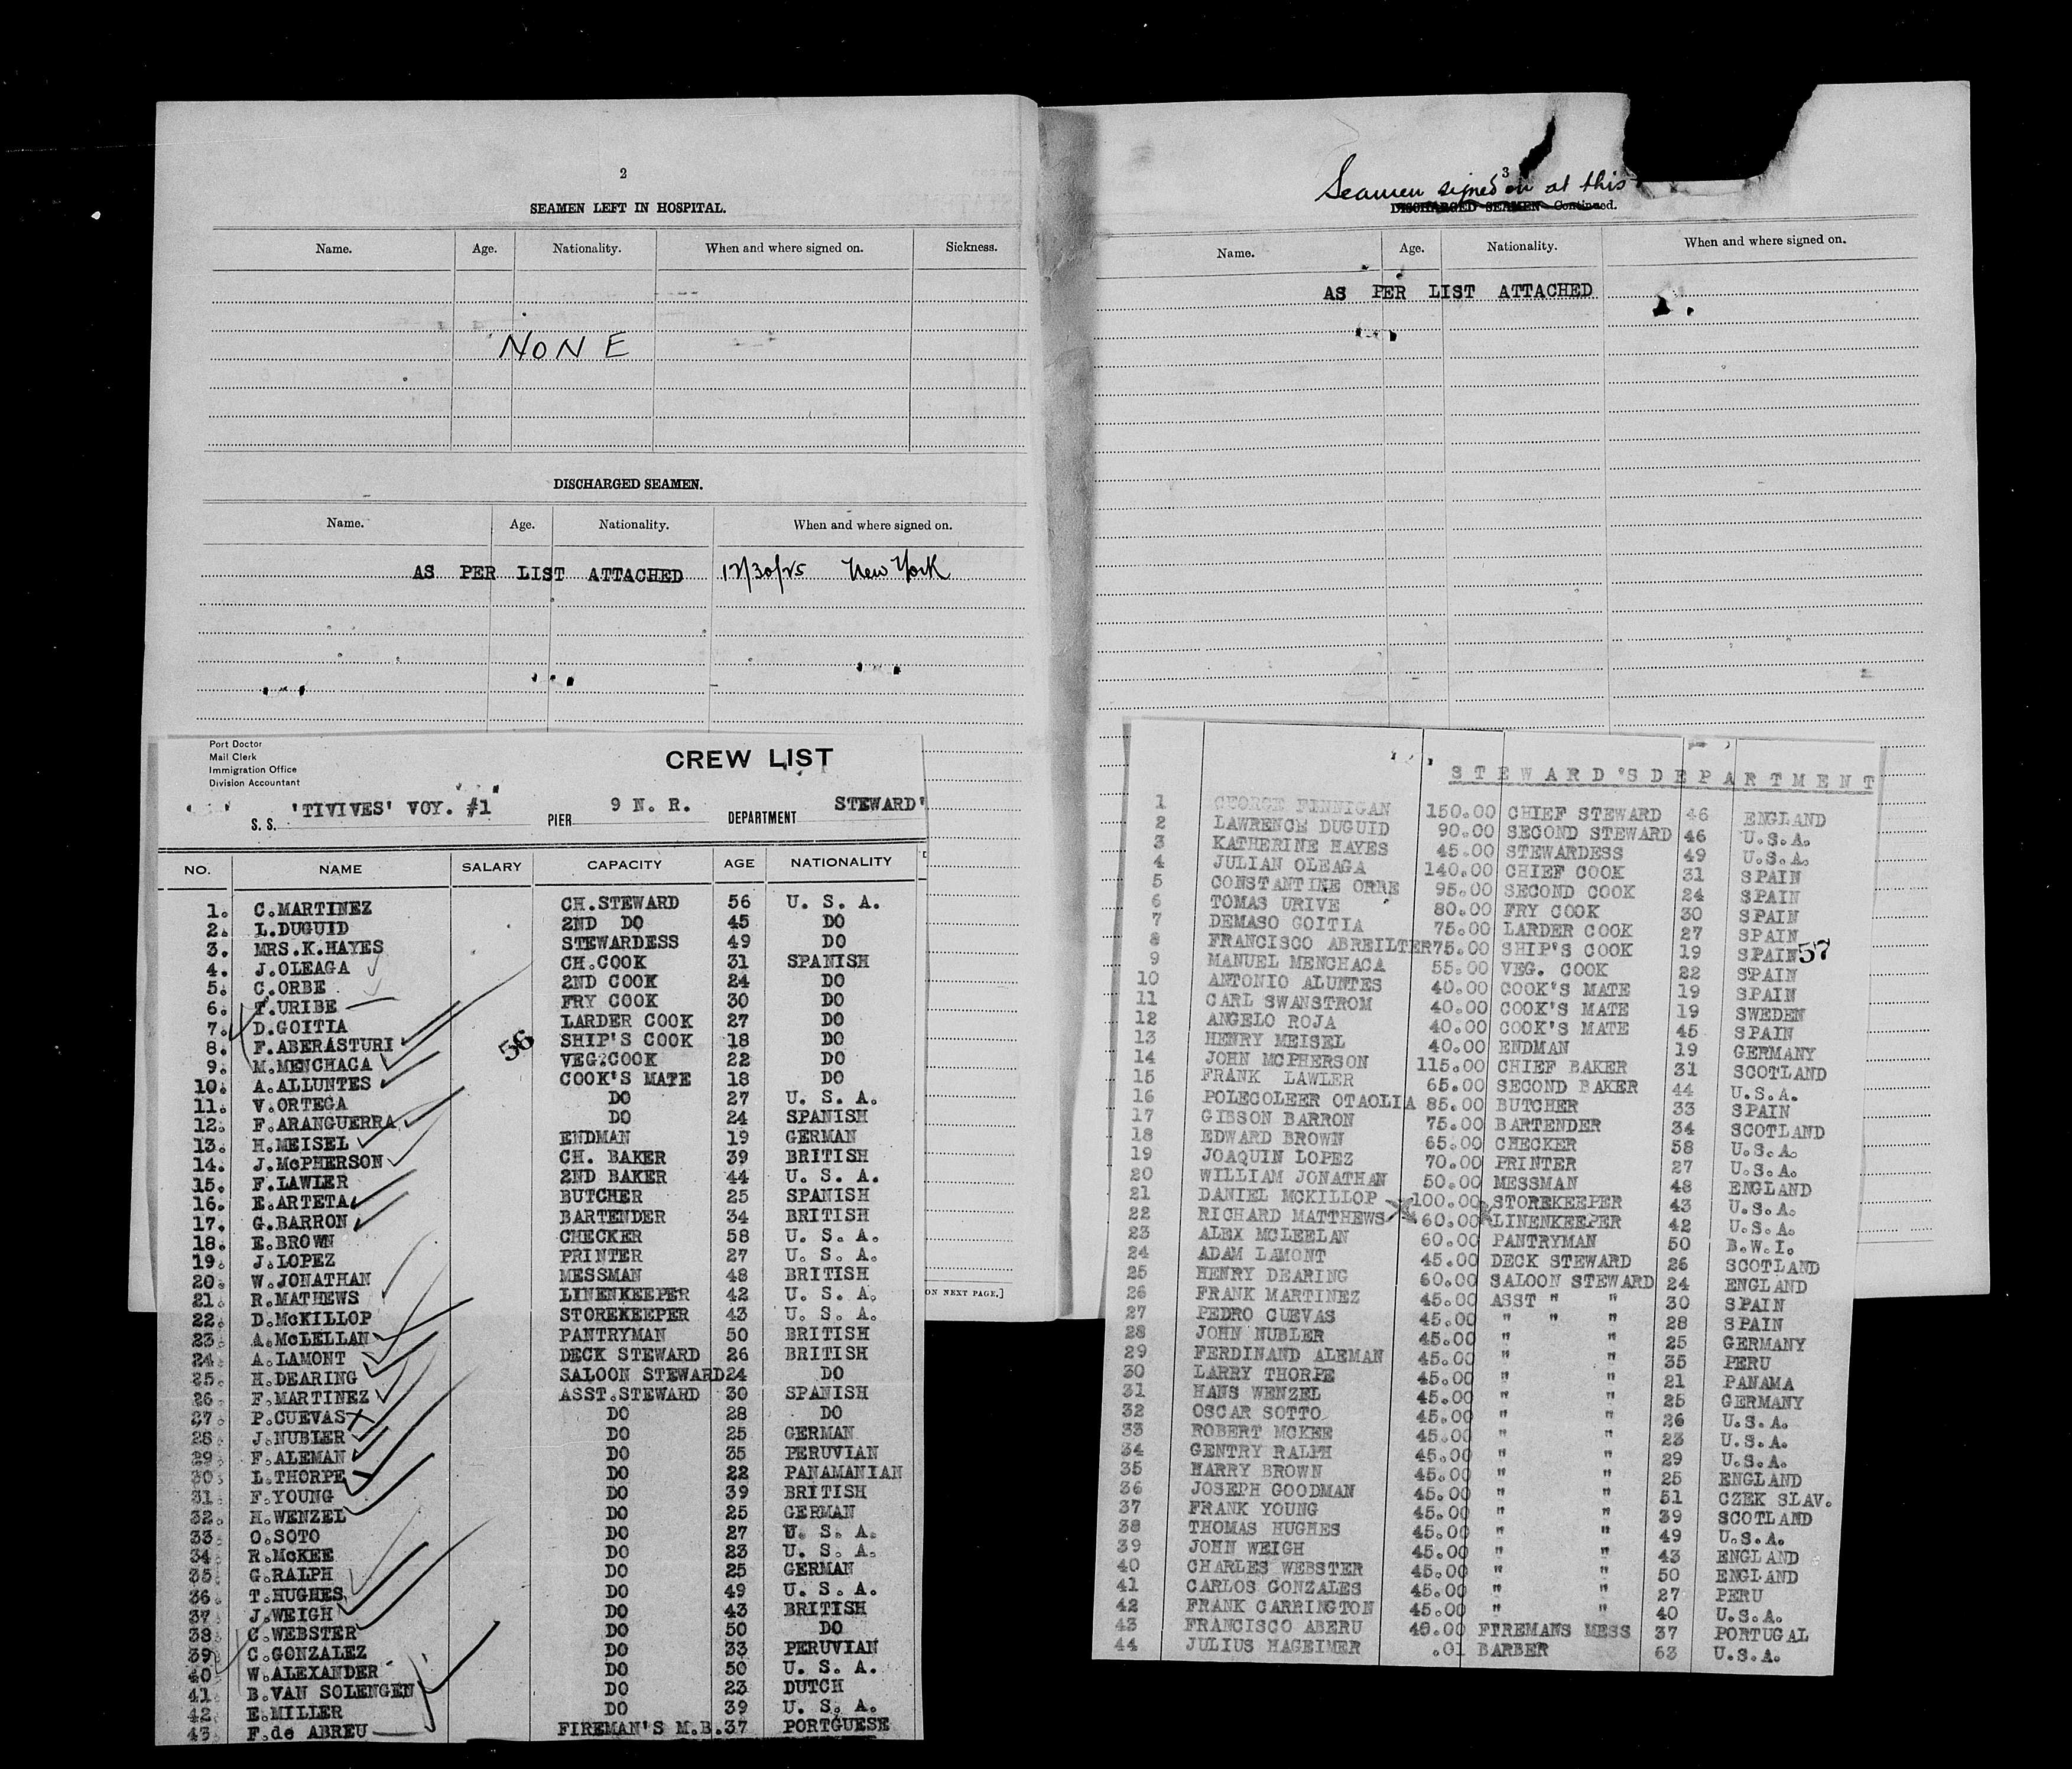 2
SEAMEN LEFT IN HOSPITAL.
Name. Age. Nationality. When and where signed on. Sickness.
NONE
DISCHARGED SEAMEN.
Name. Age. Nationality. When and where signed on.
AS PER LIST ATTACHED 12/30/25 New York
Port Doctor
Mail Clerk
Immigration Office
Division Accountant
CREW LIST
S. S. 'TIVIVES' VOY. #1 PIER 9 N. R. DEPARTMENT STEWARD'
NO. NAME SALARY CAPACITY AGE NATIONALITY
1. C.MARTINEZ CH.STEWARD 56 U. S. A.
2. L.DUGUID 2ND DO 45 DO
3. MRS.K.HAYES STEWARDESS 49 DO
4. J.OLEAGA CH.COOK 31 SPANISH
5. C.ORBE 2ND COOK 24 DO
6. T.URIBE FRY COOK 30 DO
7. D.GOITIA LARDER COOK 27 DO
8. F.ABERASTURI 56 SHIP'S COOK 18 DO
9. M.MENCHACA VEG.COOK 22 DO
10. A.ALLUNTES COOK'S MATE 18 DO
11. V.ORTEGA DO 27 U. S. A.
12. F.ARANGUERRA DO 24 SPANISH
13. H.MEISEL ENDMAN 19 GERMAN
14. J.McPHERSON CH. BAKER 39 BRITISH
15. F.LAWLER 2ND BAKER 44 U. S. A.
16. E.ARTETA BUTCHER 25 SPANISH
17. G.BARRON BARTENDER 34 BRITISH
18. E.BROWN CHECKER 58 U. S. A.
19. J.LOPEZ PRINTER 27 U. S. A.
20. W.JONATHAN MESSMAN 48 BRITISH
21. R.MATHEWS LINENKEEPER 42 U. S. A.
22. D.McKILLOP STOREKEEPER 43 U. S. A.
23. A.McLELLAN PANTRYMAN 50 BRITISH
24. A.LAMONT DECK STEWARD 26 BRITISH
25. H.DEARING SALOON STEWARD 24 DO
26. F.MARTINEZ ASST.STEWARD 30 SPANISH
27. P.CUEVAS DO 28 DO
28. J.NUBLER DO 25 GERMAN
29. F.ALEMAN DO 35 PERUVIAN
30. L.THORPE DO 22 PANAMANIAN
31. F.YOUNG DO 39 BRITISH
32. H.WENZEL DO 25 GERMAN
33. O.SOTO DO 27 U. S. A.
34. R.McKEE DO 23 U. S. A.
35. G.RALPH DO 25 GERMAN
36. T.HUGHES DO 49 U. S. A.
37. J.WEIGH DO 43 BRITISH
38. C.WEBSTER DO 50 DO
39. C.GONZALEZ DO 33 PERUVIAN
40. W.ALEXANDER DO 50 U. S. A.
41. B.VAN SOLENGEN DO 23 DUTCH
42. E.MILLER DO 39 U. S. A.
43. F.de ABREU FIREMAN'S M.B. 37 PORTGUESE
ON NEXT PAGE.]
3
Seamen signed on at this
DISCHARGED SEAMEN—Continued.
Name. Age. Nationality. When and where signed on.
AS PER LIST ATTACHED
STEWARD'S DEPARTMENT
1 GEORGE FINNIGAN 150.00 CHIEF STEWARD 46 ENGLAND
2 LAWRENCE DUGUID 90.00 SECOND STEWARD 46 U.S.A.
3 KATHERINE HAYES 45.00 STEWARDESS 49 U.S.A.
4 JULIAN OLEAGA 140.00 CHIEF COOK 31 SPAIN
5 CONSTANTINE ORRE 95.00 SECOND COOK 24 SPAIN
6 TOMAS URIVE 80.00 FRY COOK 30 SPAIN
7 DEMASO GOITIA 75.00 LARDER COOK 27 SPAIN
8 FRANCISCO ABREILTER 75.00 SHIP'S COOK 19 SPAIN 57
9 MANUEL MENCHACA 55.00 VEG. COOK 22 SPAIN
10 ANTONIO ALUNTES 40.00 COOK'S MATE 19 SPAIN
11 CARL SWANSTROM 40.00 COOK'S MATE 19 SWEDEN
12 ANGELO ROJA 40.00 COOK'S MATE 45 SPAIN
13 HENRY MEISEL 40.00 ENDMAN 19 GERMANY
14 JOHN MCPHERSON 115.00 CHIEF BAKER 31 SCOTLAND
15 FRANK LAWLER 65.00 SECOND BAKER 44 U.S.A.
16 POLECOLEER OTAOLIA 85.00 BUTCHER 33 SPAIN
17 GIBSON BARRON 75.00 BARTENDER 34 SCOTLAND
18 EDWARD BROWN 65.00 CHECKER 58 U.S.A.
19 JOAQUIN LOPEZ 70.00 PRINTER 27 U.S.A.
20 WILLIAM JONATHAN 50.00 MESSMAN 48 ENGLAND
21 DANIEL MCKILLOP 100.00 STOREKEEPER 43 U.S.A.
22 RICHARD MATTHEWS 60.00 LINENKEEPER 42 U.S.A.
23 ALEX MCLEELAN 60.00 PANTRYMAN 50 B.W.I.
24 ADAM LAMONT 45.00 DECK STEWARD 26 SCOTLAND
25 HENRY DEARING 60.00 SALOON STEWARD 24 ENGLAND
26 FRANK MARTINEZ 45.00 ASST " " 30 SPAIN
27 PEDRO CUEVAS 45.00 " " " 28 SPAIN
28 JOHN NUBLER 45.00 " " 25 GERMANY
29 FERDINAND ALEMAN 45.00 " " 35 PERU
30 LARRY THORPE 45.00 " " 21 PANAMA
31 HANS WENZEL 45.00 " " 25 GERMANY
32 OSCAR SOTTO 45.00 " " 26 U.S.A.
33 ROBERT MCKEE 45.00 " " 23 U.S.A.
34 GENTRY RALPH 45.00 " " 29 U.S.A.
35 HARRY BROWN 45.00 " " 25 ENGLAND
36 JOSEPH GOODMAN 45.00 " " 51 CZEK SLAV.
37 FRANK YOUNG 45.00 " " 39 SCOTLAND
38 THOMAS HUGHES 45.00 " " 49 U.S.A.
39 JOHN WEIGH 45.00 " " 43 ENGLAND
40 CHARLES WEBSTER 45.00 " " 50 ENGLAND
41 CARLOS GONZALES 45.00 " " 27 PERU
42 FRANK CARRINGTON 45.00 " " 40 U.S.A.
43 FRANCISCO ABERU 40.00 FIREMANS MESS 37 PORTUGAL
44 JULIUS HAGEIMER .01 BARBER 63 U.S.A.